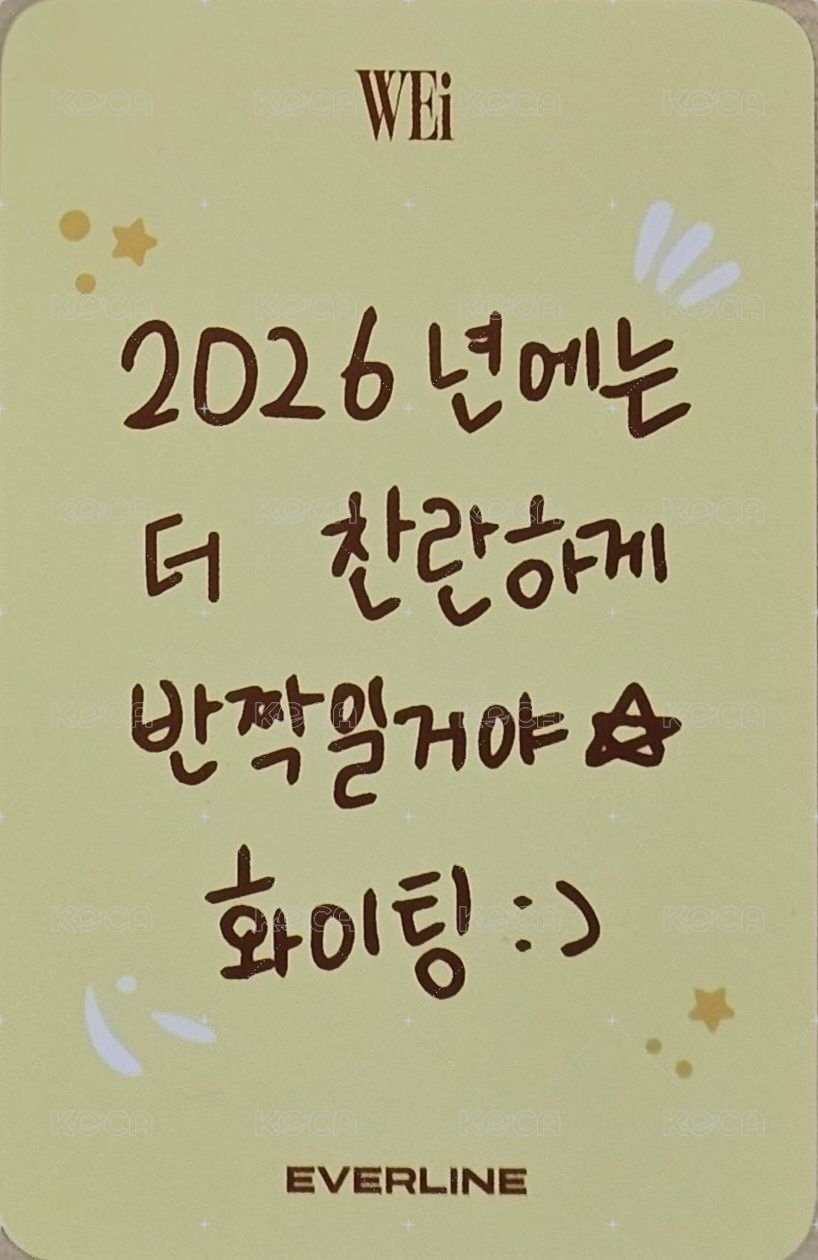 WEi
2026년에는
더 찬란하게
반짝일거야☆
화이팅 :)
EVERLINE